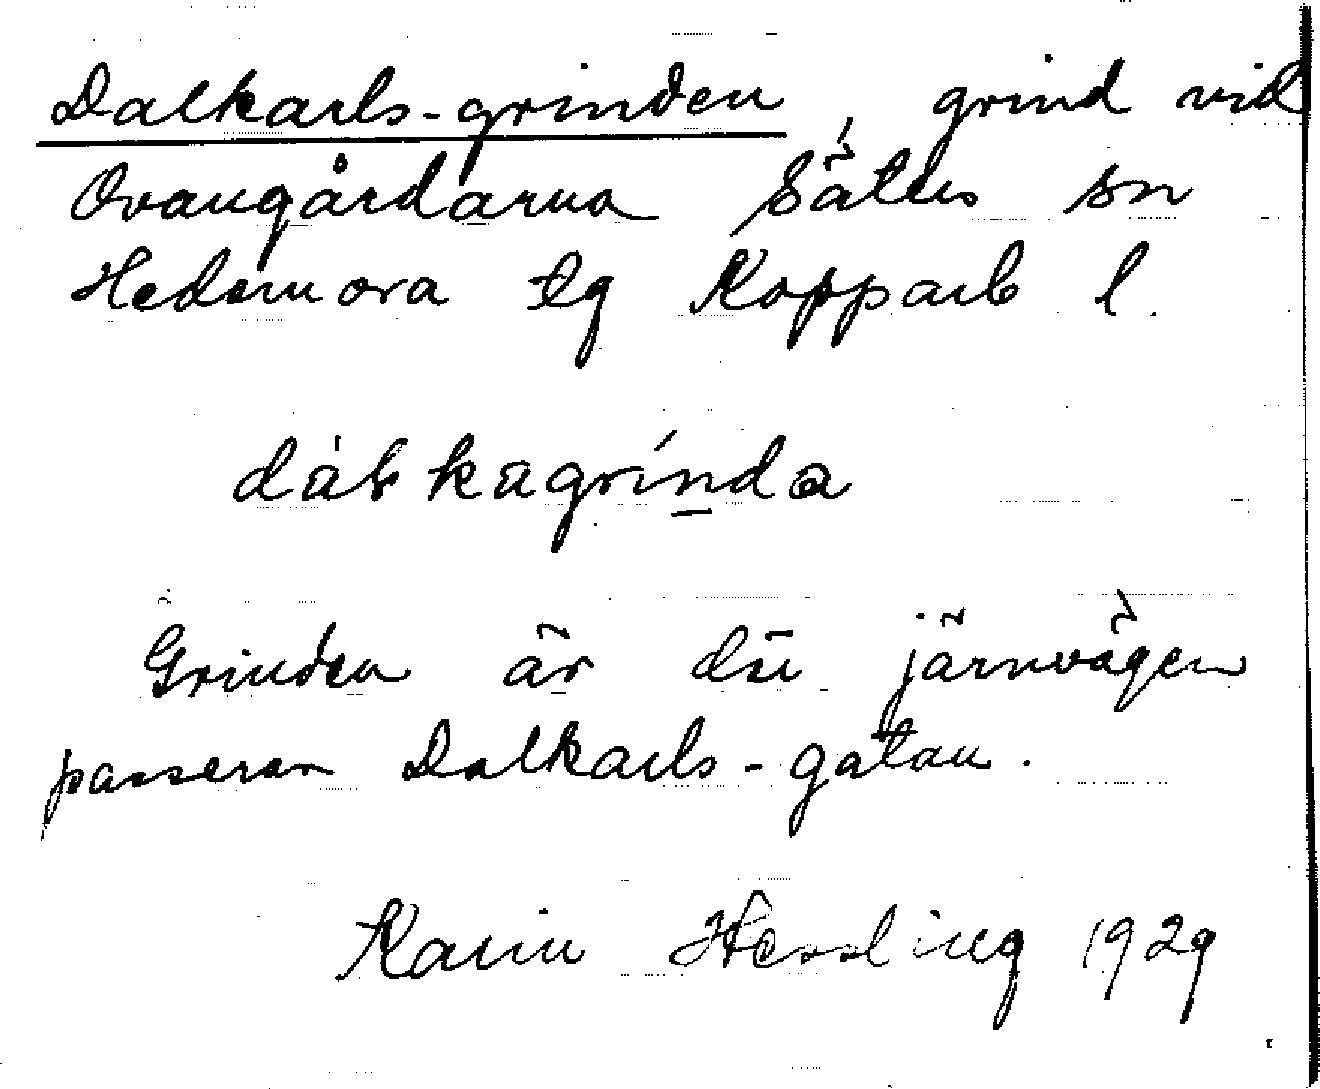 Dalkarls-grinden, grind vid
Ovangårdarna Säters sn
Hedemora tg Kopparb l.
dàlkagrinda
Grinden är du järnvägen
passerar Dalkarls-gatan.
Karin Hessling 1929